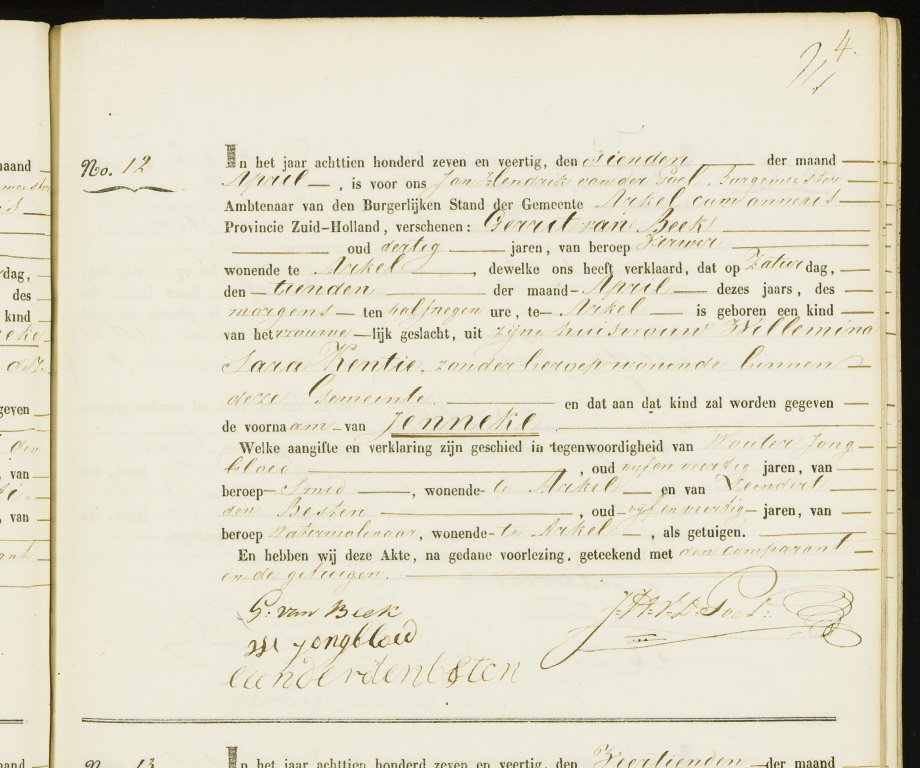 4.
No. 12
In het jaar achttien honderd zeven en veertig, den Tienden der maand
April, is voor ons Jan Hendrik van der Poel Burgemeester
Ambtenaar van den Burgerlijken Stand der Gemeente Arkel cum annexis
Provincie Zuid-Holland, verschenen: Gerrit van Beek
oud dertig jaren, van beroep Verwer
wonende te Arkel, dewelke ons heeft verklaard, dat op Zaturdag,
den tienden der maand April dezes jaars, des
morgens ten halfnegen ure, te Arkel is geboren een kind
van het vrouwelijk geslacht, uit zijne huisvrouw Willemina
Sara Kentie, zonder beroep wonende binnen
deze Gemeente. en dat aan dat kind zal worden gegeven
de voornaam van Jenneke
Welke aangifte en verklaring zijn geschied in tegenwoordigheid van Wouter Jong
bloed, oud vijf en veertig jaren, van
beroep Smid, wonende te Arkel en van Leendert
den Besten, oud vijf en veertig jaren, van
beroep Watermolenaar, wonende te Arkel, als getuigen.
En hebben wij deze Akte, na gedane voorlezing, geteekend met den comparant
en de getuigen.
G. van Beek
W jongbloed
leendertdenbesten
No. 13
In het jaar achttien honderd zeven en veertig, den Veertienden der maand
maand
dag,
des
kind
geven
den
van
van